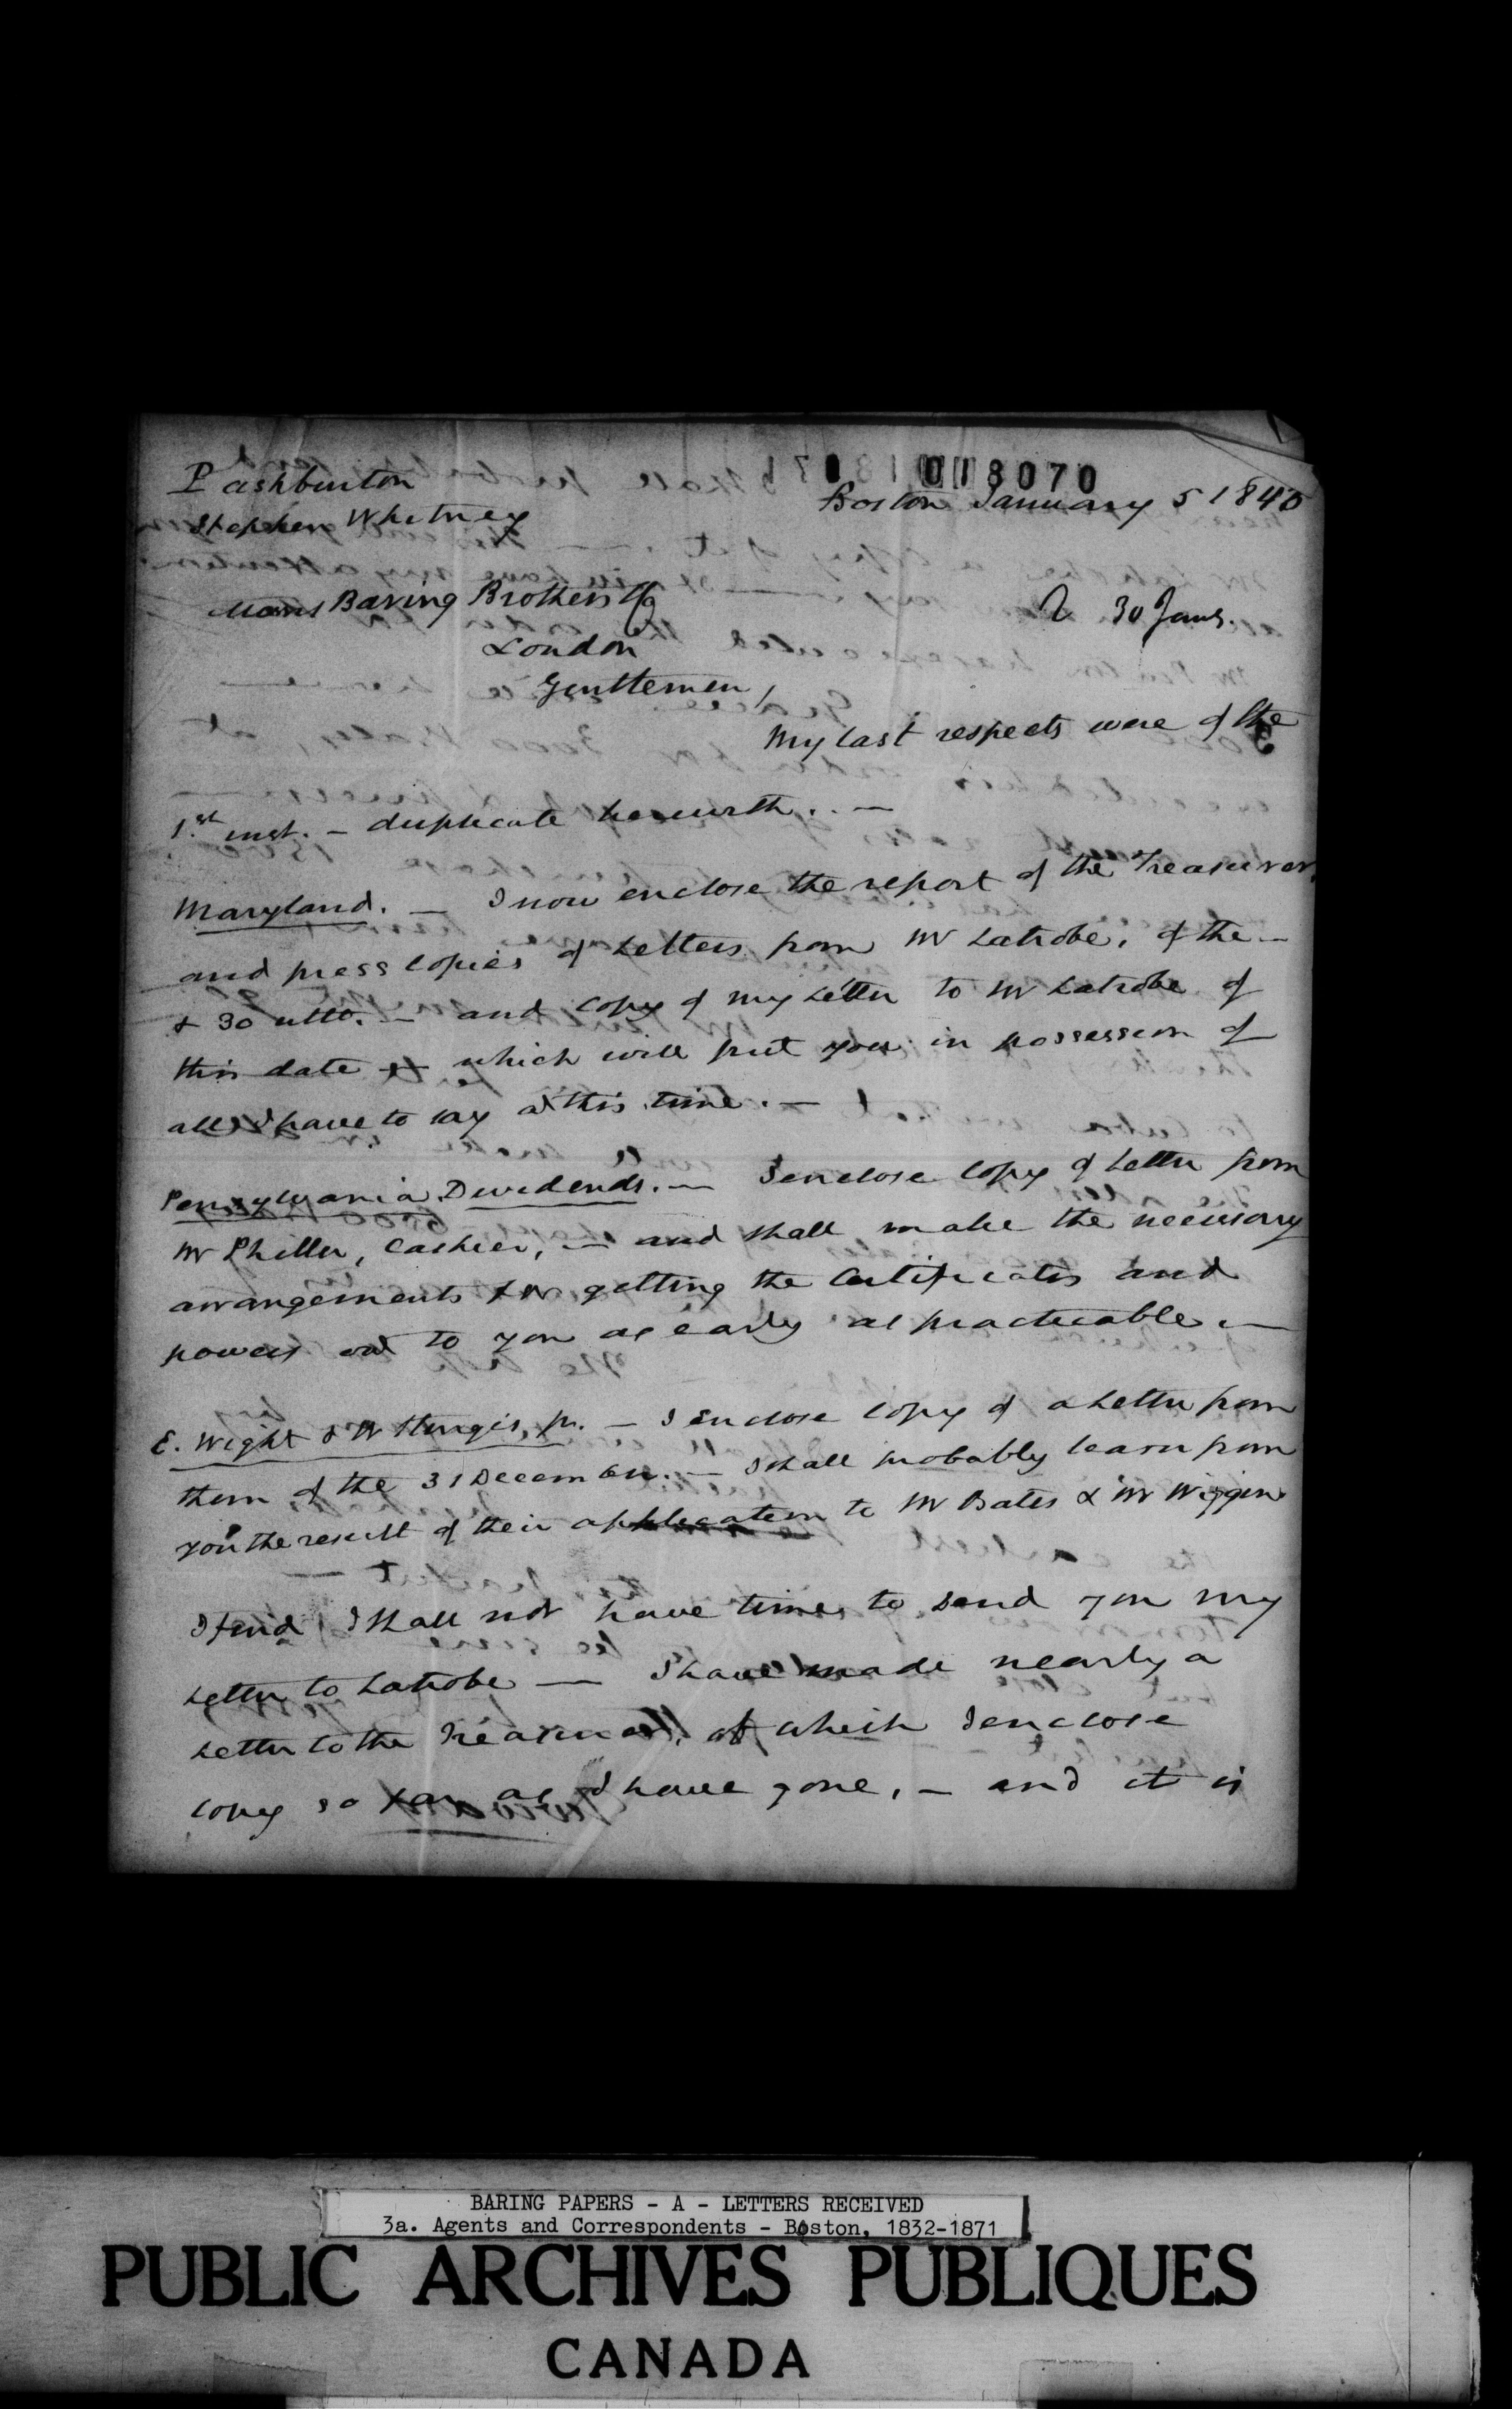 018070
P Ashburton
Stephen Whitney
Boston January 5 1840
Messrs Baring Brothers & Co
R 30 Jany.
London
Gentlemen,
My last respects were of the
1.st inst. — duplicate herewith. . —
Maryland. — I now enclose the report of the Treasurer,
and press copies of Letters from Mr Latrobe, of the —
& 30 ulto. — and copy of my Letter to Mr Latrobe of
this date — which will put you in possession of
all I have to say at this time. —
Pennsylvania Dividends. — I enclose copy of Letter from
Mr Philler, Cashier, — and shall make the necessary
arrangements for getting the Certificates and
powers out to you as early as practicable. —
E. Wight & W Sturgis, jr. — I enclose copy of a Letter from
them of the 31 December. — I shall probably learn from
you the result of their application to Mr Bates & Mr Wiggin
I find I shall not have time to send you my
Letter to Latrobe — I have made nearly a
Letter to the Treasurer, of which I enclose
copy so far as I have gone, — and it is
BARING PAPERS - A - LETTERS RECEIVED
3a. Agents and Correspondents - Boston, 1832-1871
PUBLIC ARCHIVES PUBLIQUES
CANADA